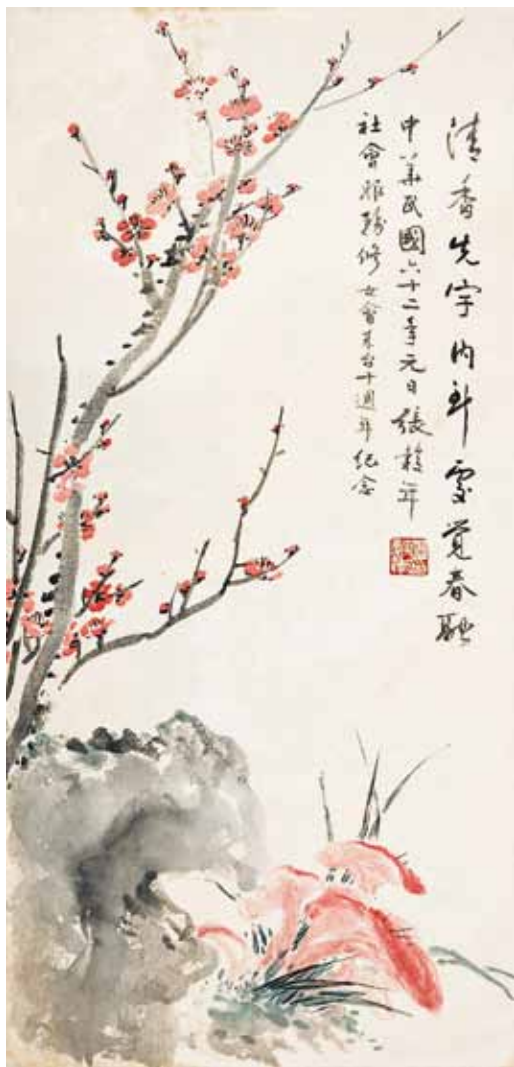 清香先宇內到處覺春融
中華民國六十二年元日張穀年
社會服務修女會來台十週年紀念